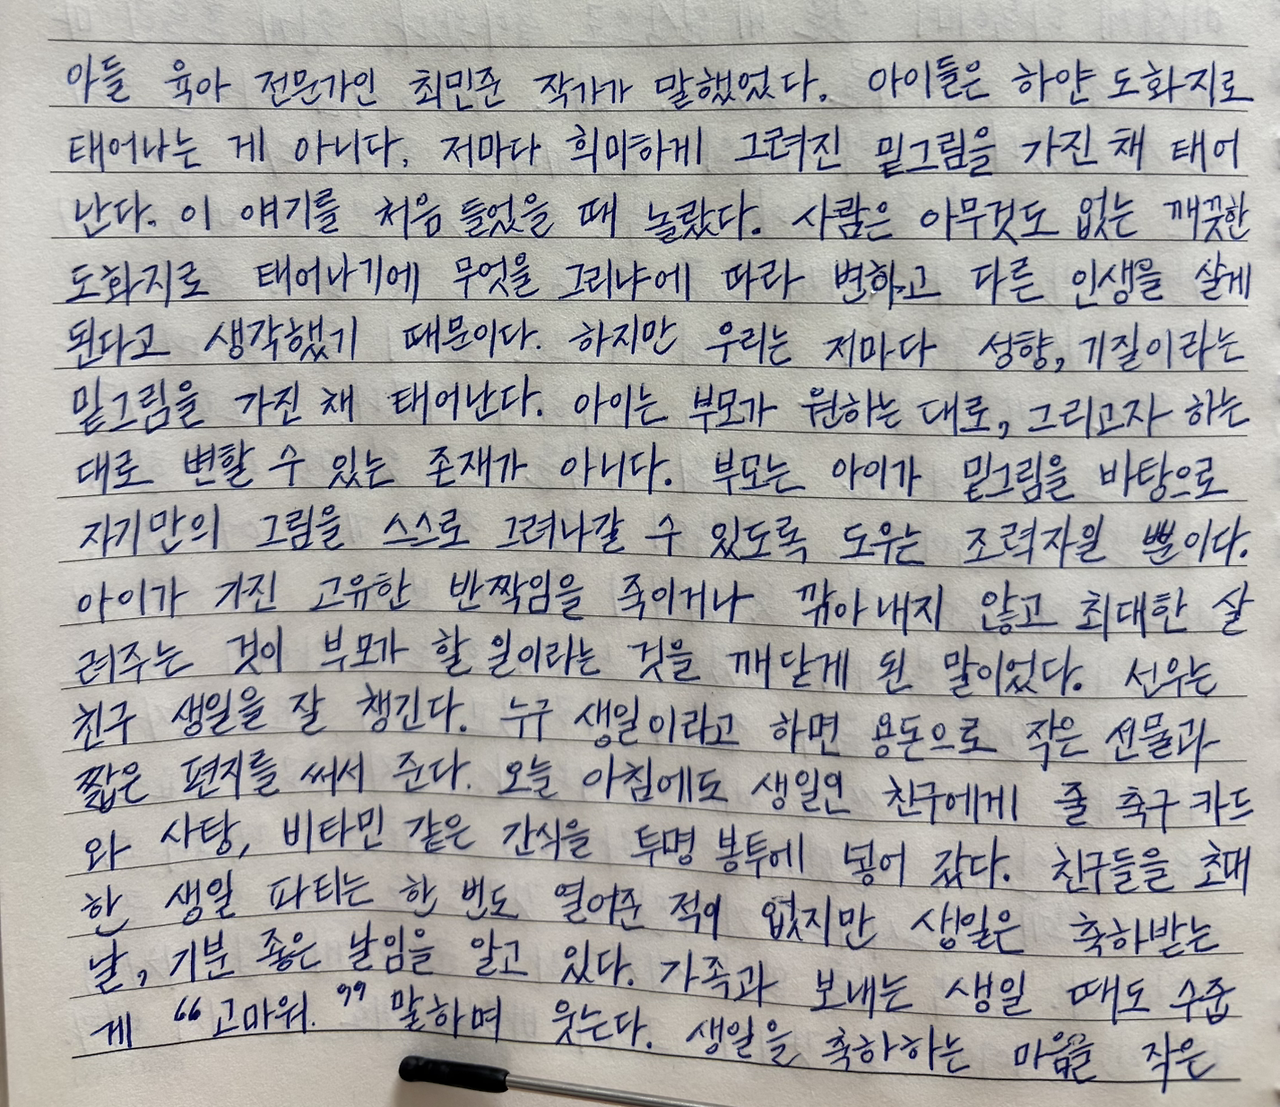 아들 육아 전문가인 최민준 작가가 말했었다. 아이들은 하얀 도화지로
태어나는 게 아니다. 저마다 희미하게 그려진 밑그림을 가진 채 태어
난다. 이 얘기를 처음 들었을 때 놀랐다. 사람은 아무것도 없는 깨끗한
도화지로 태어나기에 무엇을 그리냐에 따라 변하고 다른 인생을 살게
된다고 생각했기 때문이다. 하지만 우리는 저마다 성향, 기질이라는
밑그림을 가진 채 태어난다. 아이는 부모가 원하는 대로, 그리고자 하는
대로 변할 수 있는 존재가 아니다. 부모는 아이가 밑그림을 바탕으로
자기만의 그림을 스스로 그려나갈 수 있도록 도우는 조력자일 뿐이다.
아이가 가진 고유한 반짝임을 죽이거나 깎아내지 않고 최대한 살
려주는 것이 부모가 할 일이라는 것을 깨닫게 된 말이었다. 선우는
친구 생일을 잘 챙긴다. 누구 생일이라고 하면 용돈으로 작은 선물과
짧은 편지를 써서 준다. 오늘 아침에도 생일인 친구에게 줄 축구 카드
와 사탕, 비타민 같은 간식을 투명 봉투에 넣어 갔다. 친구들을 초대
한 생일 파티는 한 번도 열어준 적이 없지만 생일은 축하받는
날, 기분 좋은 날임을 알고 있다. 가족과 보내는 생일 때도 수줍
게 “고마워.” 말하며 웃는다. 생일을 축하하는 마음을 작은